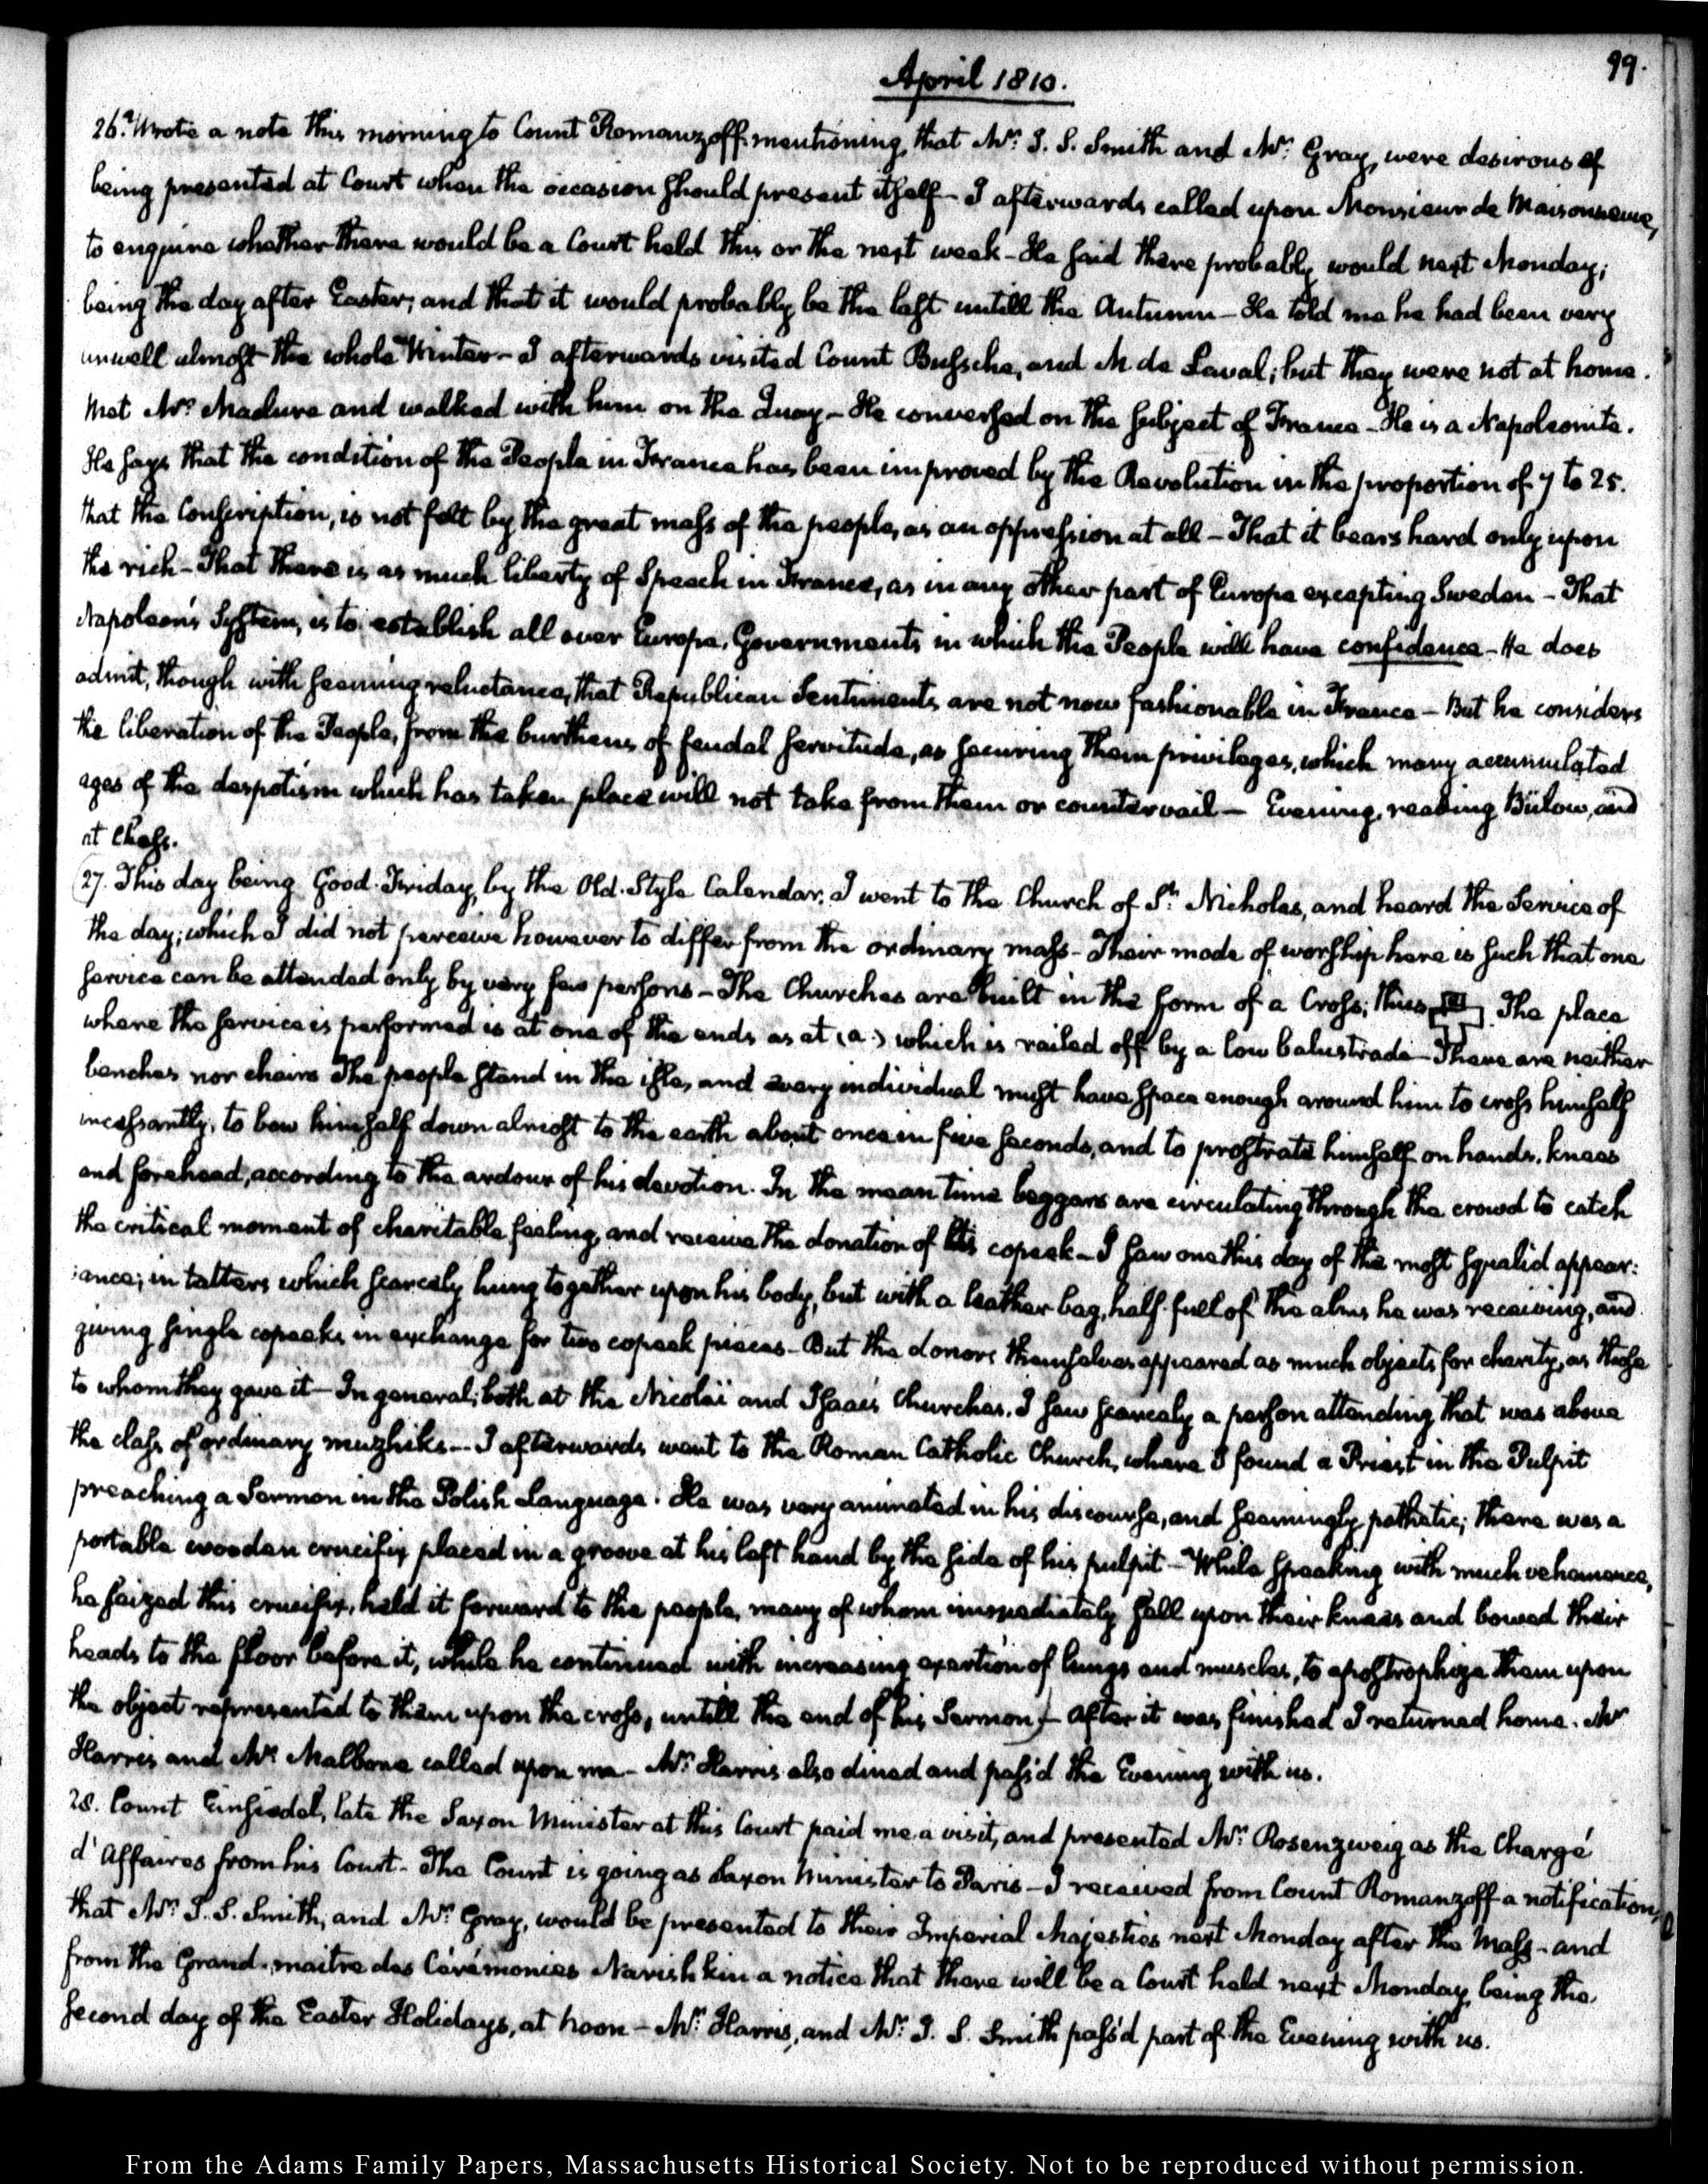 99.
April 1810.
26. Wrote a note this morning to Count Romanzoff mentioning, that Mr. J. S. Smith and Mr. Gray, were desirous of
being presented at Court when the occasion should present itself — I afterwards called upon Monsieur de Maisonneuve,
to enquire whether there would be a Court held this or the next week — He said there probably would next Monday;
being the day after Easter; and that it would probably be the last untill the Autumn — He told me he had been very
unwell almost the whole Winter — I afterwards visited Count Bussche, and M. de Laval; but they were not at home.
Met Mr. Maclure and walked with him on the Quay — He conversed on the subject of France — He is a Napoleonite.
He says that the condition of the People in France has been improved by the Revolution in the proportion of 7 to 25.
that the Conscription, is not felt by the great mass of the people, as an oppression at all — That it bears hard only upon
the rich — That there is as much liberty of Speech in France, as in any other part of Europe excepting Sweden — That
Napoleon's System, is to establish all over Europe, Governments in which the People will have confidence — He does
admit, though with seeming reluctance, that Republican Sentiments are not now fashionable in France — But he considers
the liberation of the People, from the burthens of feudal servitude, as securing them privileges, which many accumulated
ages of the despotism which has taken place will not take from them or countervail — Evening, reading Bülow, and
at Chess.
27. This day being Good-Friday, by the Old-Style Calendar, I went to the Church of St. Nicholas, and heard the Service of
the day; which I did not perceive however to differ from the ordinary mass — Their mode of worship here is such that one
service can be attended only by very few persons — The Churches are built in the form of a Cross; thus a The place
where the service is performed is at one of the ends as at (a.) which is railed off by a low balustrade — There are neither
benches nor chairs The people stand in the isle, and every individual must have space enough around him to cross himself
incessantly, to bow himself down almost to the earth about once in five seconds, and to prostrate himself on hands, knees
and forehead, according to the ardour of his devotion. In the mean time beggars are circulating through the crowd to catch
the critical moment of charitable feeling, and receive the donation of the copeek — I saw one this day of the most squalid appear:
:ance; in tatters which scarcely hung together upon his body, but with a leather bag, half full of the alms he was receiving, and
giving single copeeks in exchange for two copeek pieces — But the donors themselves appeared as much objects for charity, as those
to whom they gave it — In general, both at the Nicolai and Isaac's Churches, I saw scarcely a person attending that was above
the class of ordinary muzhiks — I afterwards went to the Roman Catholic Church, where I found a Priest in the Pulpit
preaching a Sermon in the Polish Language. He was very animated in his discourse, and seemingly pathetic; there was a
portable wooden crucifix placed in a groove at his left hand by the side of his pulpit — While speaking with much vehemence,
he seized this crucifix, held it forward to the people, many of whom immediately fell upon their knees and bowed their
heads to the floor before it, while he continued with increasing exertion of lungs and muscles, to apostrophize them upon
the object represented to them upon the cross, untill the end of his Sermon — After it was finished I returned home. Mr.
Harris and Mr. Malbone called upon me — Mr. Harris also dined and pass'd the Evening with us.
28. Count Einsiedel, late the Saxon Minister at this Court paid me a visit, and presented Mr. Rosenzweig as the Chargé
d'Affaires from his Court — The Count is going as Saxon Minister to Paris — I received from Count Romanzoff a notification,
that Mr. J. S. Smith, and Mr. Gray, would be presented to their Imperial Majesties next Monday after the Mass — and
from the Grand-maitre des Cérémonies Narishkin a notice that there will be a Court held next Monday, being the
second day of the Easter Holidays, at noon — Mr. Harris, and Mr. J. S. Smith pass'd part of the Evening with us.
From the Adams Family Papers, Massachusetts Historical Society. Not to be reproduced without permission.